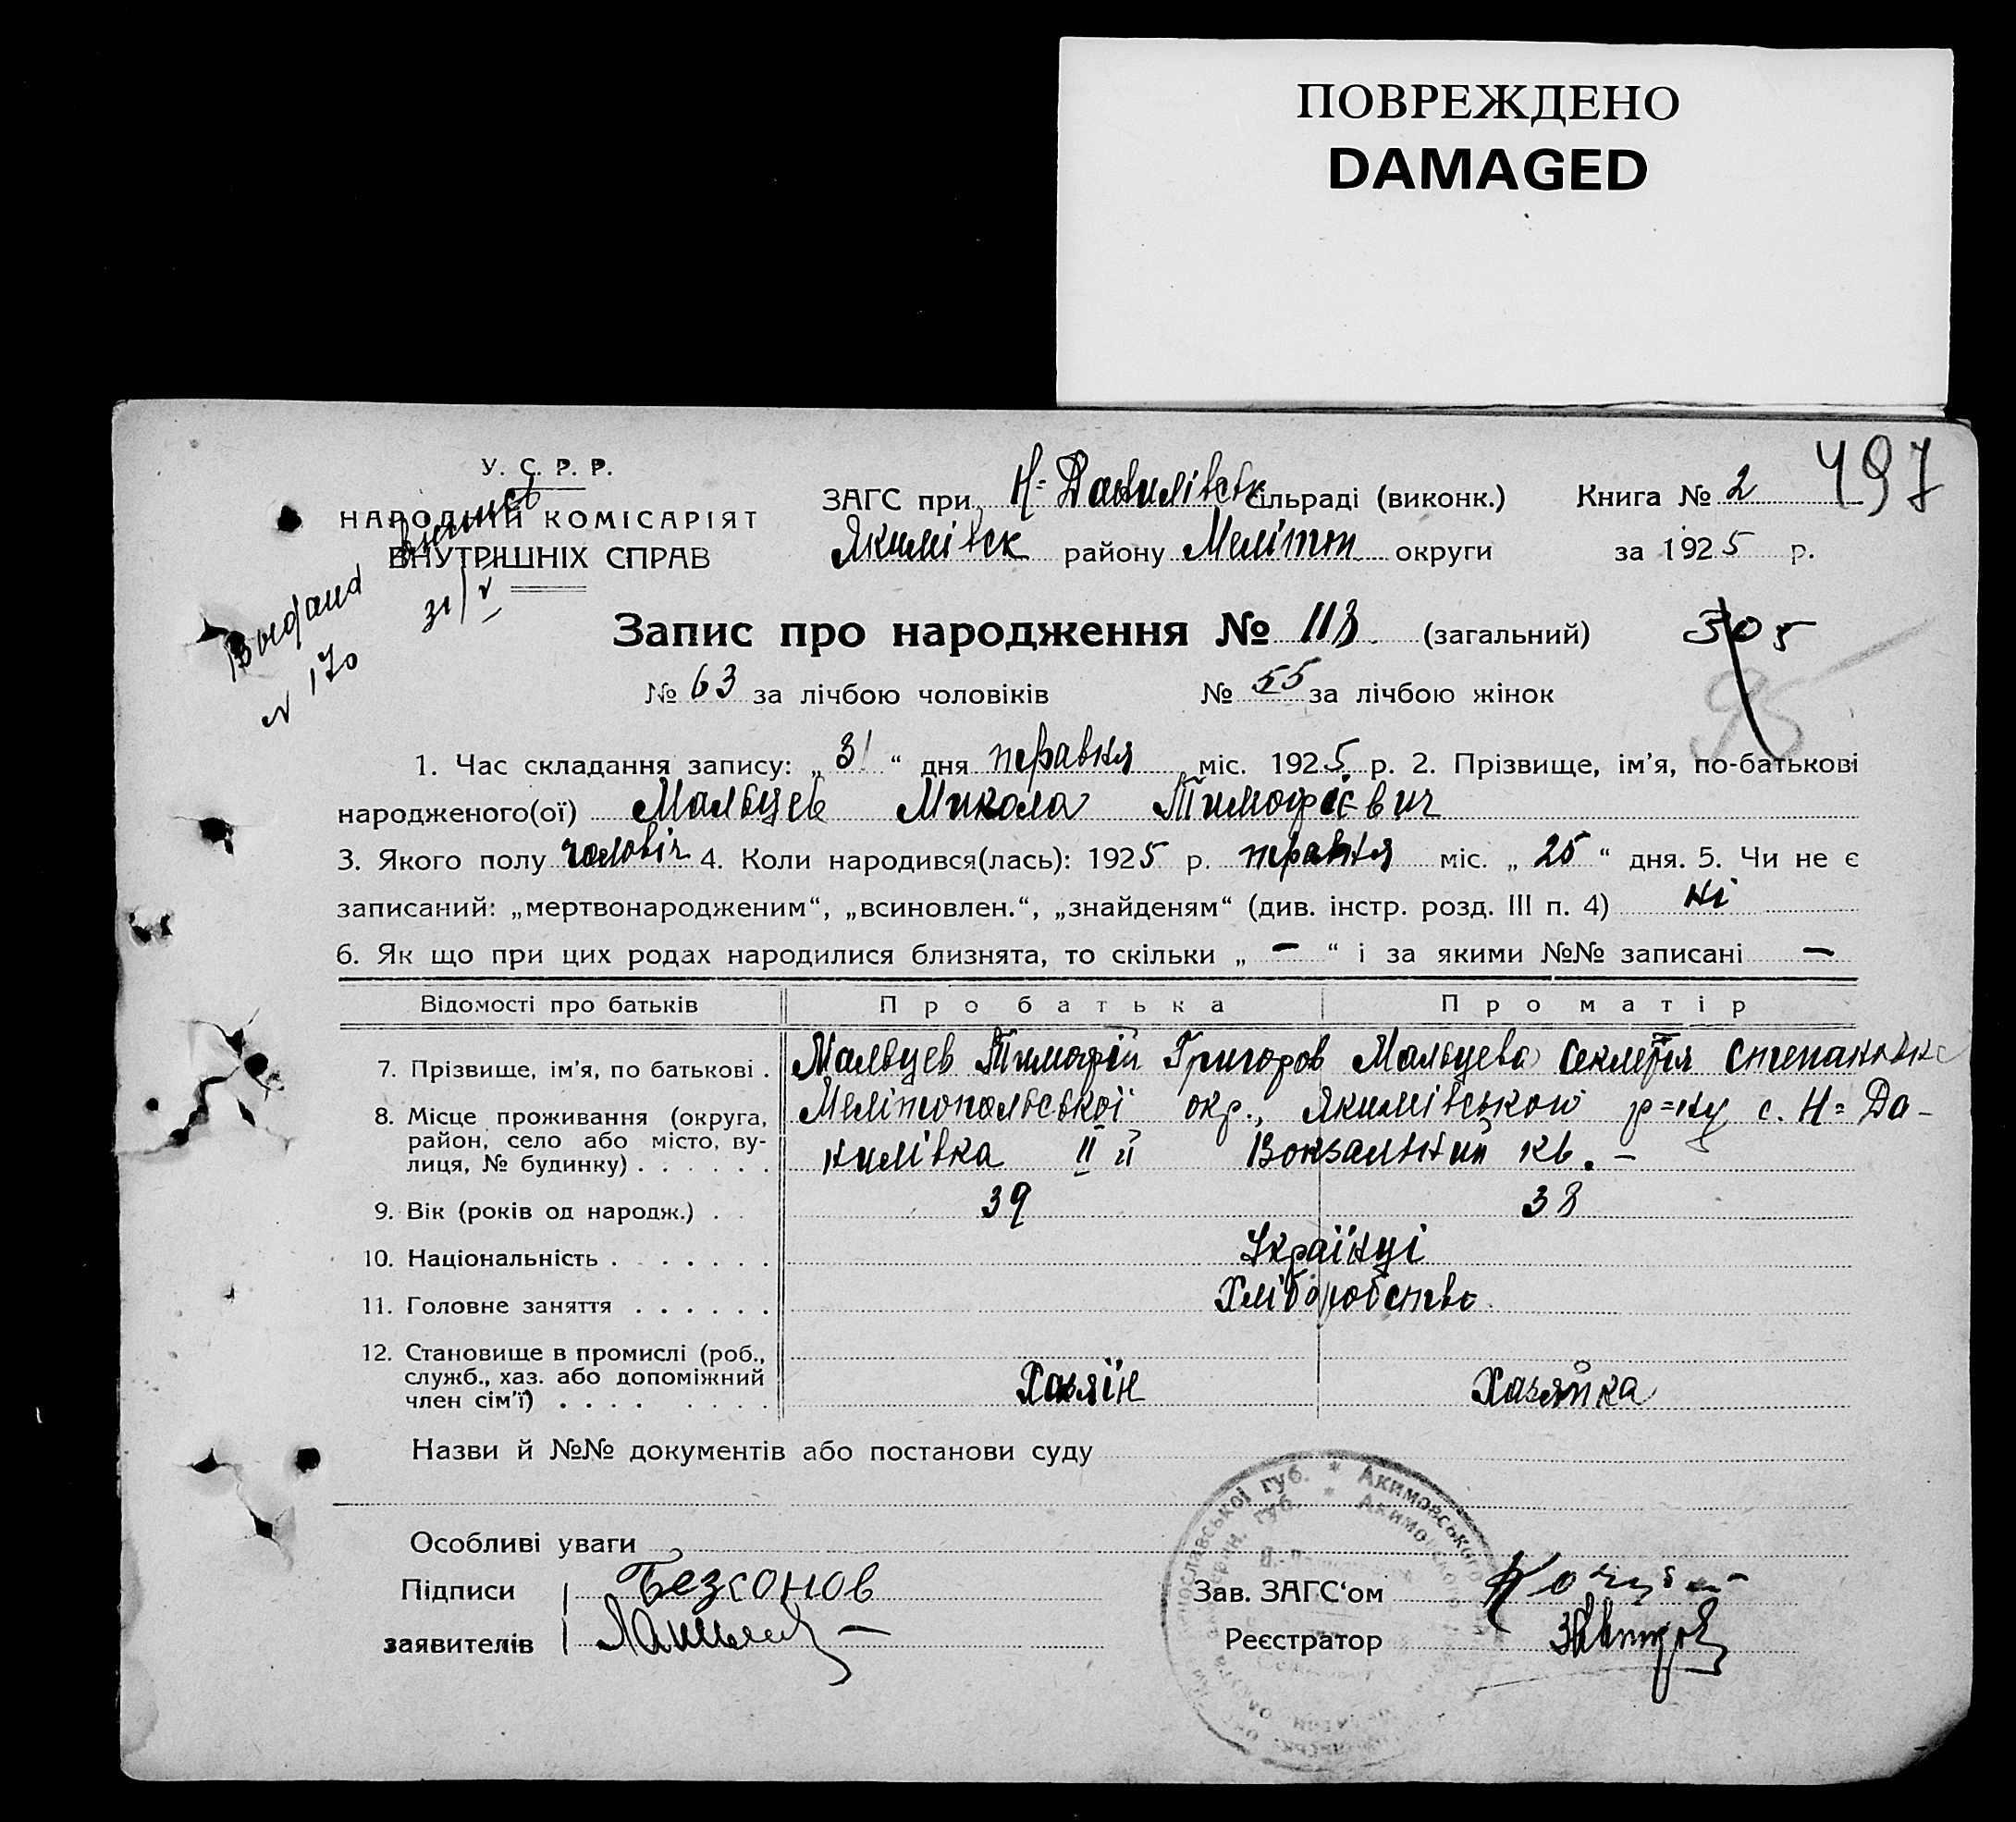 ПОВРЕЖДЕНО
DAMAGED
497
У. С. Р. Р.
НАРОДНІЙ КОМІСАРІЯТ
ВНУТРІШНІХ СПРАВ
31/V
N 170
ЗАГС при Н=Данилівськ сільраді (виконк.) Книга № 2
Якимівск району Меліт округи за 1925 р.
Запис про народження № 118 (загальний) 305
№ 63 за лічбою чоловіків № 55 за лічбою жінок
95
1. Час складання запису: „31“ дня травня міс. 1925 р. 2. Прізвище, ім’я, по-батькові
народженого(ої) Мальцев Микола Тимофієвич
3. Якого полу чоловіч 4. Коли народився(лась): 1925 р. травня міс. „25“ дня. 5. Чи не є
записаний: „мертвонародженим“, „всиновлен.“, „знайденям“ (див. інстр. розд. III п. 4) ні
6. Як що при цих родах народилися близнята, то скільки „–“ і за якими №№ записані –
Відомості про батьків Про батька Про матір
7. Прізвище, ім’я, по батькові . Мальцев Тимофій Григоров Мальцева Секлетія Степановна
8. Місце проживання (округа, район, село або місто, вулиця, № будинку) . . . . . . Мелітопольської окр., Якимівського р=ну с. Н=Да-
нилівка II й Вокзальний кв. –
9. Вік (років од народж.) . . 39 38
10. Національність . . . . . . . Українці
11. Головне заняття . . . . . . Хліборобство
12. Становище в промислі (роб.,
служб., хаз. або допоміжний
член сім’ї) . . . . . . . . Хазяїн Хазяйка
Назви й №№ документів або постанови суду
Особливі уваги
Підписи Безсонов
заявителів
Зав. ЗАГС‘ом
Реєстратор
губ. * Акимовського